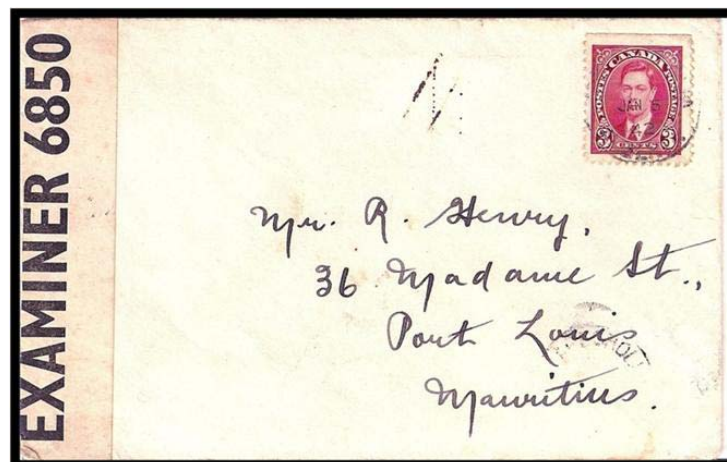 EXAMINER 6850
POSTES CANADA POSTAGE
3 CENTS 3
JAN 5
42
Mr. R. Henry,
36 Madame St.,
Port Louis
Mauritius.